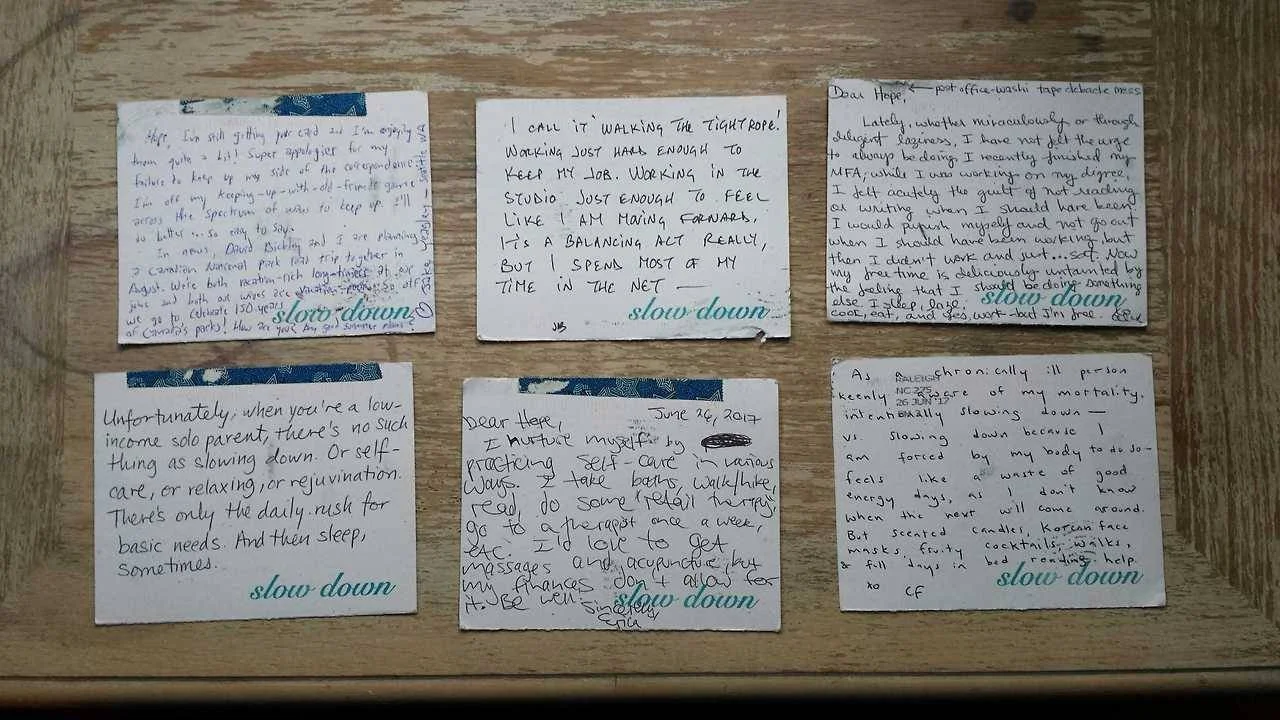 Hope, I'm still getting your card and I'm enjoying
them quite a bit! Super appologies for my
failure to keep up my side of the correspondence.
I'm off my keeping-up-with-old-friends game
across the spectrum of ways to keep up. I'll
do better ... so easy to say.
In news, David and I are planning
a Canadian National Park road trip together in
August. We're both vacation-rich long-timers at our
jobs and both our wives are so off
we go to celebrate 150 years
of Canada's parks! How are you? Any good summer plans?
slow down
"I CALL IT 'WALKING THE TIGHTROPE'.
WORKING JUST HARD ENOUGH TO
KEEP MY JOB. WORKING IN THE
STUDIO JUST ENOUGH TO FEEL
LIKE I AM MOVING FORWARD.
IT'S A BALANCING ACT REALLY,
BUT I SPEND MOST OF MY
TIME IN THE NET —
JB
slow down
Dear Hope, ← post office-washi tape debacle mess
Lately, whether miraculously or through
diligent laziness, I have not felt the urge
to always be doing. I recently finished my
MFA; while I was working on my degree,
I felt acutely the guilt of not reading
or writing when I should have been.
I would punish myself and not go out
when I should have been working, but
then I didn't work and just...sat. Now
my free time is deliciously untainted by
the feeling that I should be doing something
else. I sleep, laze,
cook, eat, and yes, work—but I'm free.
slow down
Unfortunately, when you're a low-
income solo parent, there's no such
thing as slowing down. Or self-
care, or relaxing, or rejuvination.
There's only the daily rush for
basic needs. And then sleep,
sometimes.
slow down
June 26, 2017
Dear Hope,
I nurture myself by
practicing self-care in various
ways. I take baths, walk/hike,
read, do some "retail therapy",
go to a therapist once a week,
etc. I'd love to get
massages and acupuncture, but
my finances don't allow for
it. Be well. Sincerely,
Erica
slow down
As a chronically ill person
keenly aware of my mortality,
intentionally slowing down —
vs. slowing down because I
am forced by my body to do so-
feels like a waste of good
energy days, as I don't know
when the next will come around.
But scented candles, Korean face
masks, fruity cocktails, walks,
& full days in bed reading help.
xo CF
RALEIGH
NC 275
26 JUN '17
slow down